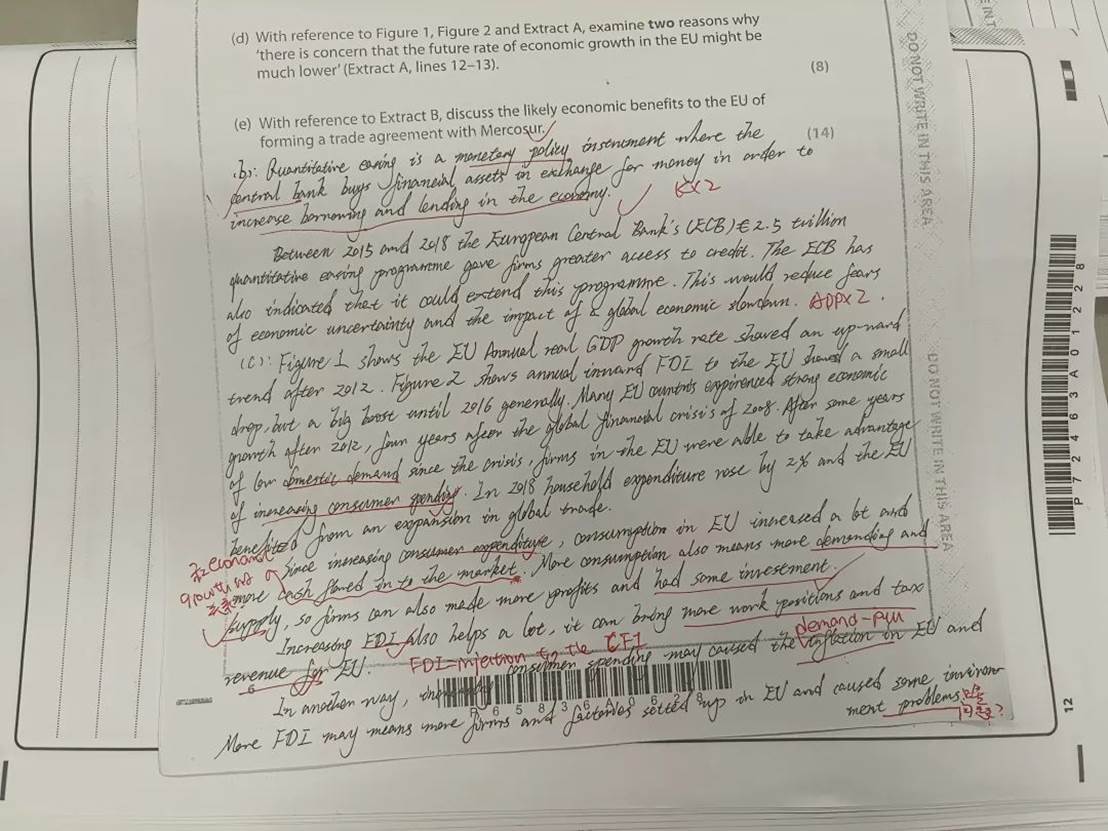 (d) With reference to Figure 1, Figure 2 and Extract A, examine two reasons why
'there is concern that the future rate of economic growth in the EU might be
much lower' (Extract A, lines 12–13).
(8)
(e) With reference to Extract B, discuss the likely economic benefits to the EU of
forming a trade agreement with Mercosur.
(14)
(b): Quantitative easing is a monetary policy instrument where the
central bank buys financial assets in exchange for money in order to
increase borrowing and lending in the economy.
K×2
Between 2015 and 2018 the European Central Bank's (ECB) € 2.5 trillion
quantitative easing programme gave firms greater access to credit. The ECB has
also indicated that it could extend this programme. This would reduce fears
of economic uncertainty and the impact of a global economic slowdown. APP×2.
(c): Figure 1 shows the EU Annual real GDP growth rate showed an up-ward
trend after 2012. Figure 2 shows annual inward FDI to the EU showed a small
drop, but a big boost until 2016 generally. Many EU countries expirenced strong economic
growth after 2012, four years after the global financial crisis of 2008. After some years
of low domestic demand since the crisis, firms in the EU were able to take advantage
of increasing consumer spending. In 2018 household expenditure rose by 2% and the EU
benefited from an expansion in global trade.
Since increasing consumer expenditure, consumption in EU increased a lot and
more cash flowed in to the market. More consumption also means more demanding and
supply, so firms can also made more profits and had some investment.
和 economic
growth
Increasing FDI also helps a lot, it can bring more work positions and tax
revenue for EU.
FDI-injection to the CFI
demand-pull
In another way, consumer spending may caused the inflation in EU and
More FDI may means more firms and factories setted up in EU and caused some environ
ment problems.
P 6 5 8 3 6 A 0 6 2 8
6
DO NOT WRITE IN THIS AREA
DO NOT WRITE IN THIS AREA
P 7 2 4 6 3 A 0 1 2 2 8
12